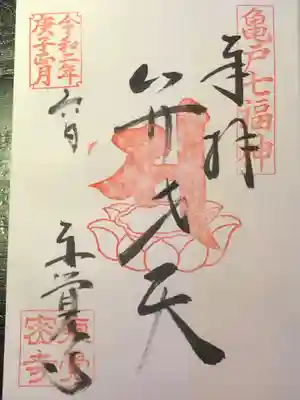 亀戸七福神
奉拝
弁才天
令和二年
庚子正月
東覚寺
東覺
密寺